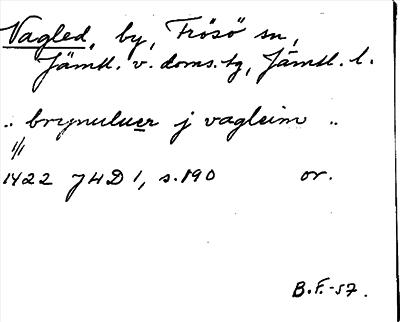 Vagled, by, Frösö sn,
Jämtl. v. doms. tg, Jämtl. l.
.. brynuluer j vagleim ..
1/1
1422 JHD 1, s. 190 or.
B.F.-57.